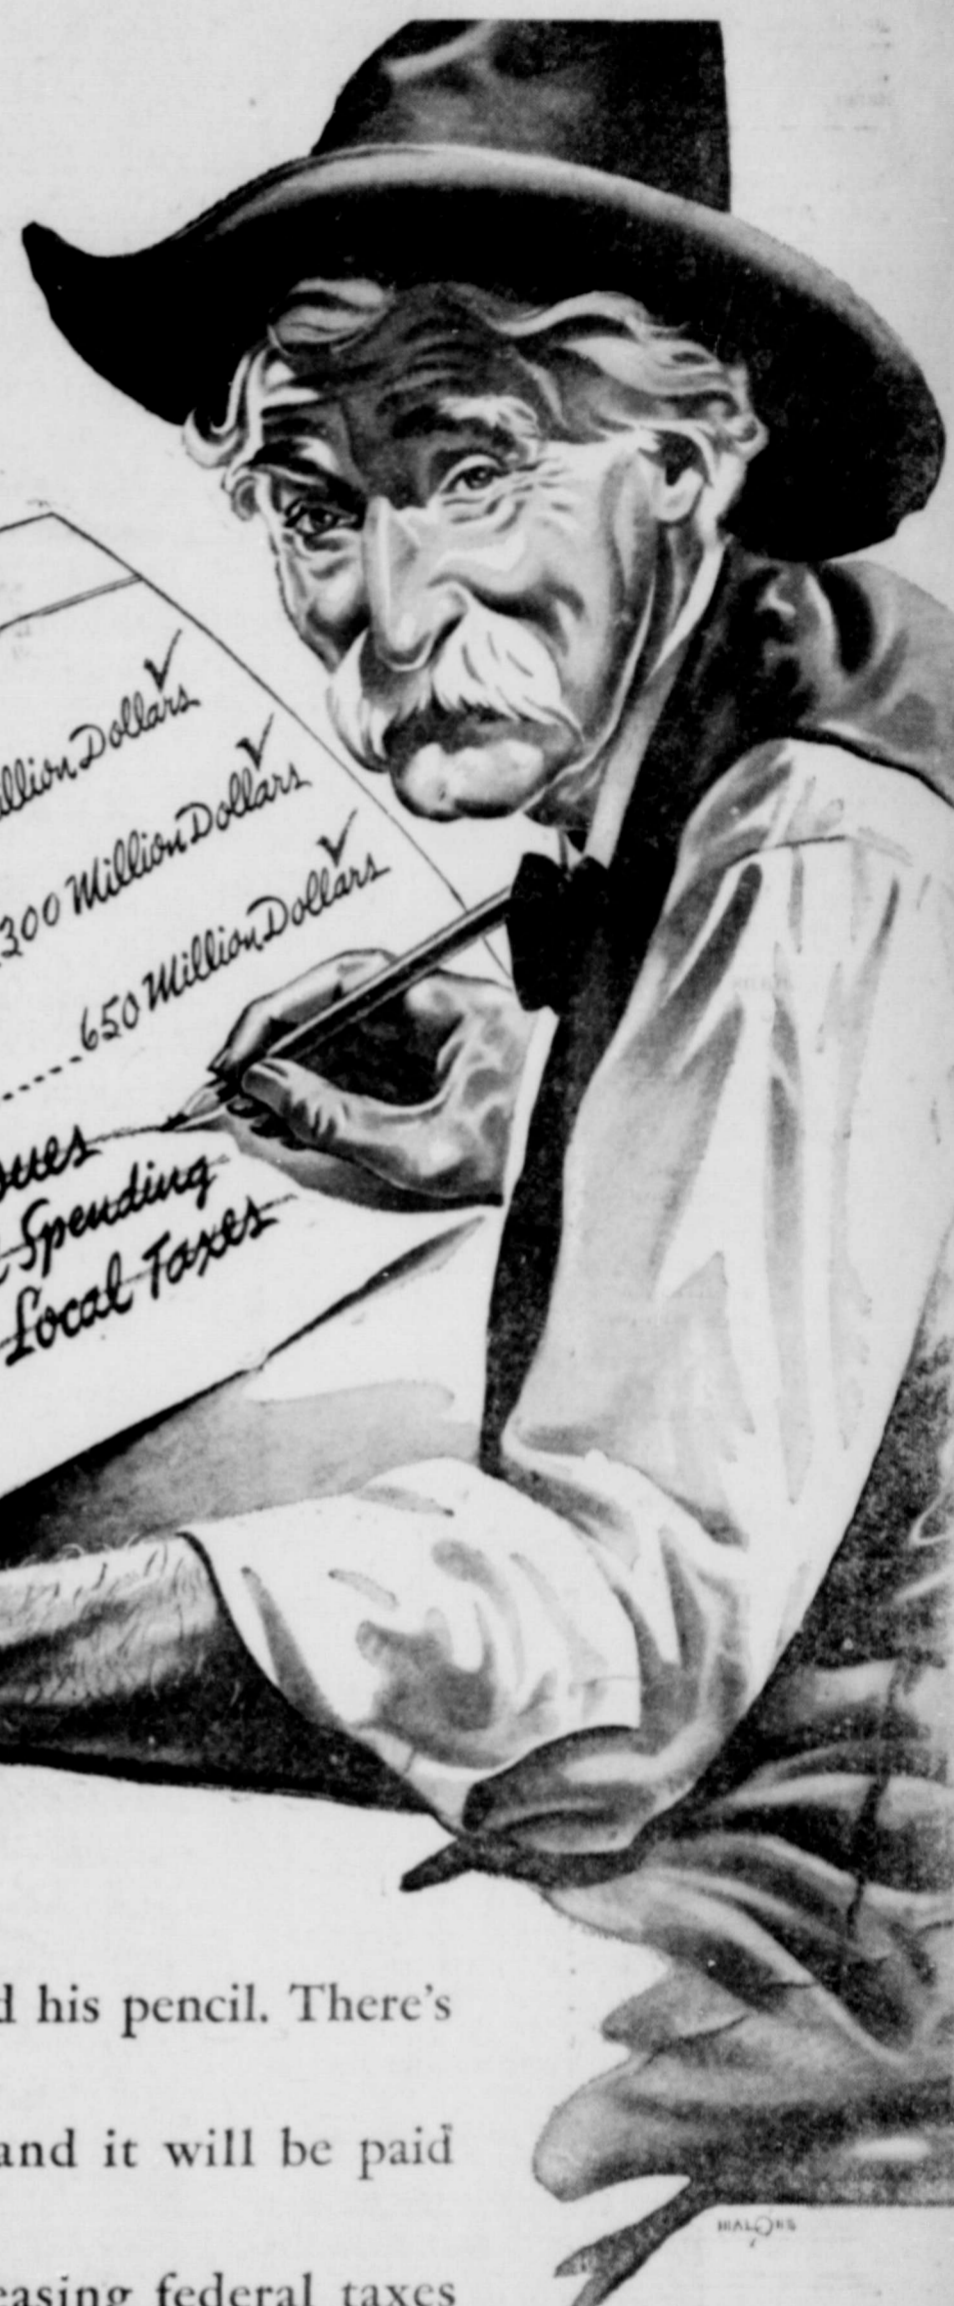 illion Dollars
300 Million Dollars
650 Million Dollars
Spending
Local Taxes
d his pencil. There's
and it will be paid
easing federal taxes